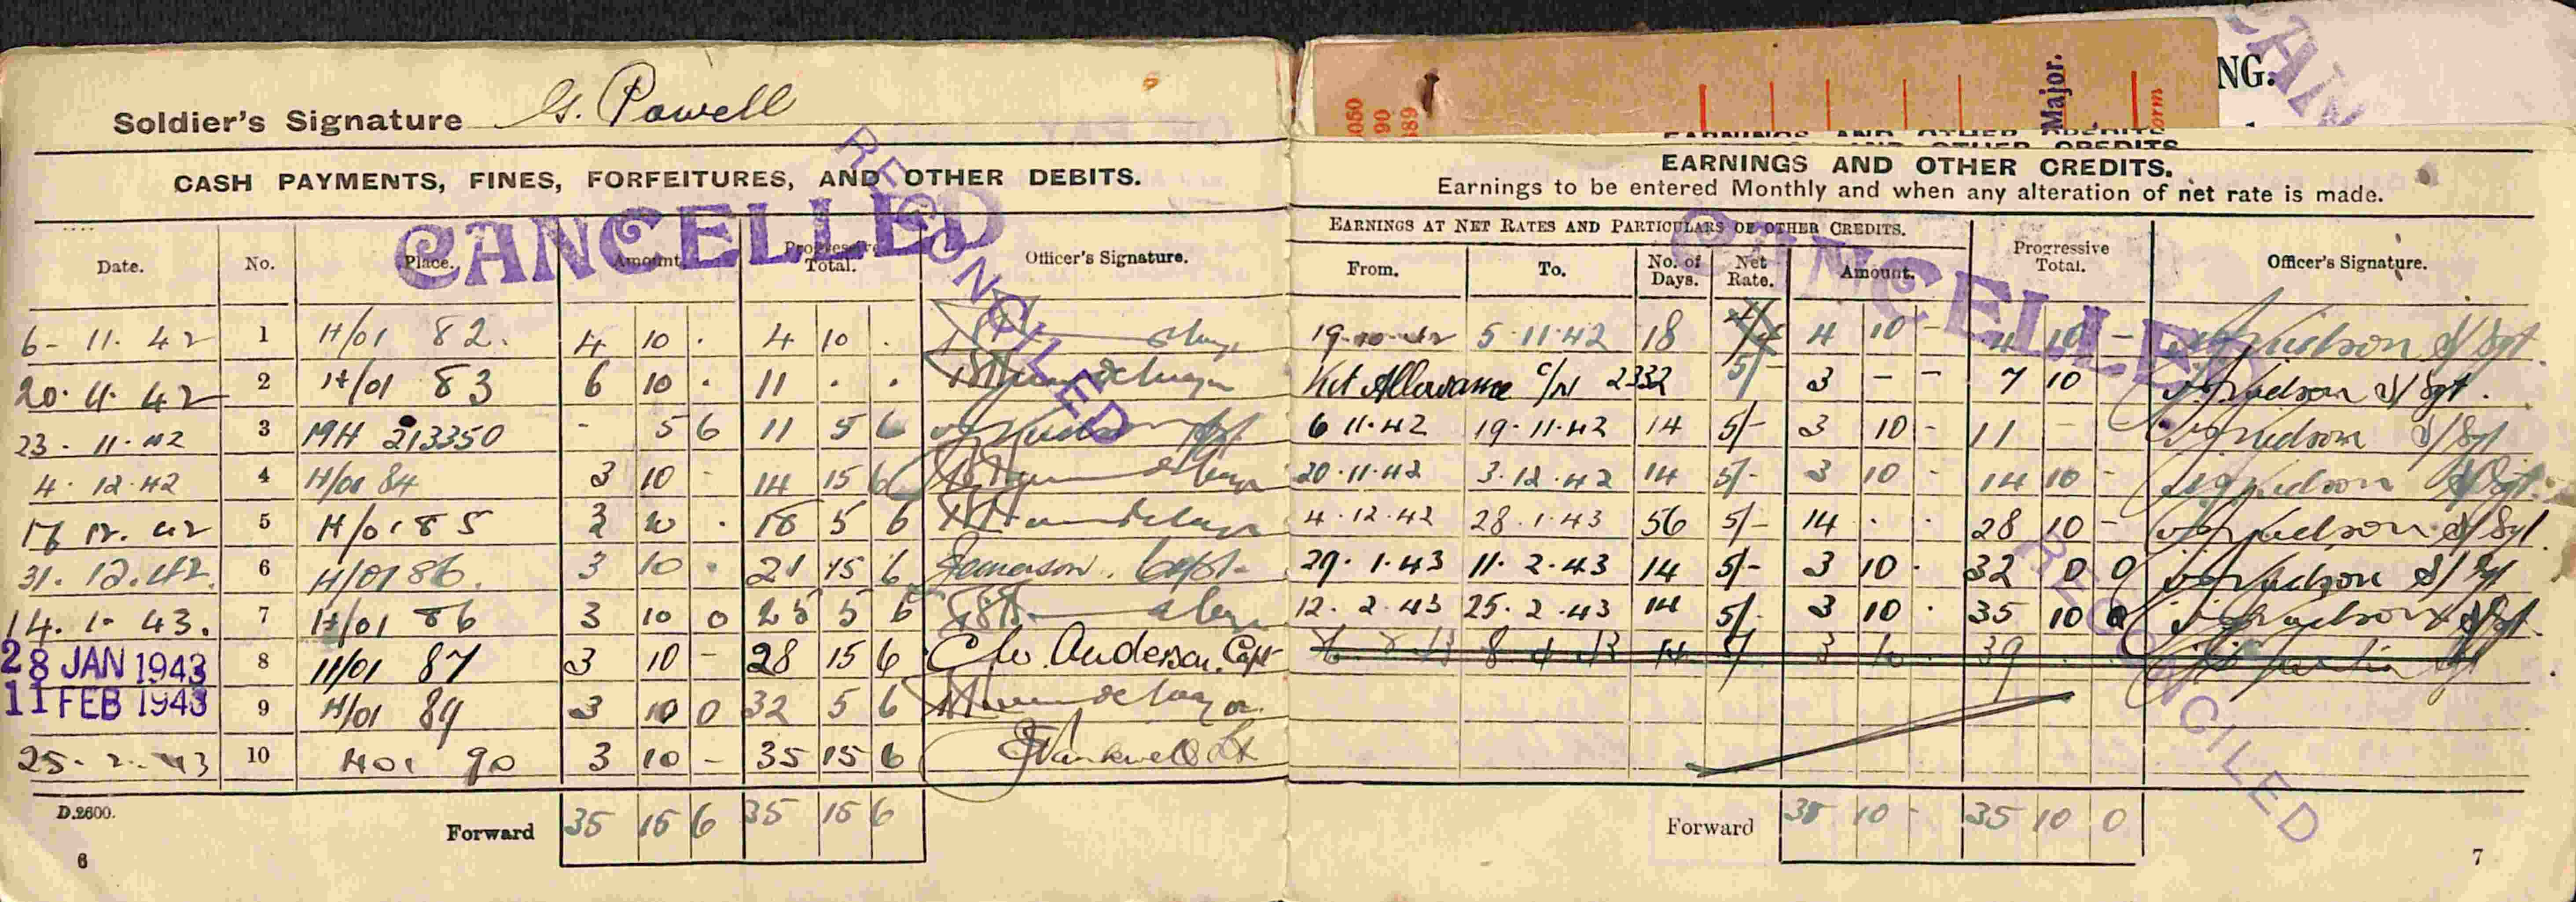 Soldier's Signature G. Powell
CASH PAYMENTS, FINES, FORFEITURES, AND OTHER DEBITS.
CANCELLED
RECONCILED
Date. No. Place. Amount. Progressive Total. Officer's Signature.
6- 11. 42 1 H/01 82. 4 10 . 4 10 .
20. 11. 42 2 H/01 83 6 10 . 11 . .
23 - 11. 42 3 MH 213350 - 5 6 11 5 6
4. 12. 42 4 H/01 84 3 10 - 14 15 6
12. 42 5 H/01 85 3 10 . 18 5 6
31. 12. 42. 6 H/01 86. 3 10 . 21 15 6 Capt.
14. 1- 43. 7 H/01 86 3 10 0 25 5 6
28 JAN 1943 8 H/01 87 3 10 - 28 15 6 Anderson. Capt
11 FEB 1943 9 H/01 89 3 10 0 32 5 6
25- 2- 43 10 H01 90 3 10 - 35 15 6 Lt
D.2600.
Forward 35 15 6 35 15 6
6
050
90
389
Major.
orm
NG.
EARNINGS AND OTHER CREDITS
EARNINGS AND OTHER CREDITS.
Earnings to be entered Monthly and when any alteration of net rate is made.
EARNINGS AT NET RATES AND PARTICULARS OF OTHER CREDITS. Progressive Total. Officer's Signature.
From. To. No. of Days. Net Rate. Amount.
CANCELLED
RECONCILED
19-10-42 5.11.42 18 4 10 - 4 10 - S/Sgt
Kit Allowance C/N 2332 5/- 3 - - 7 10 S/Sgt.
6 11.42 19.11.42 14 5/- 3 10 - 11 - S/Sgt
20.11.42 3.12.42 14 5/- 3 10 - 14 10 - S/Sgt
4.12.42 28.1.43 56 5/- 14 . . 28 10 - S/Sgt
29. 1.43 11. 2.43 14 5/- 3 10 . 32 0 0 S/Sgt
12. 2.43 25. 2.43 14 5/- 3 10 . 35 10 0 S/Sgt
8 4 43 14 5/ 3 10 . 39 . .
Forward 35 10 - 35 10 0
7